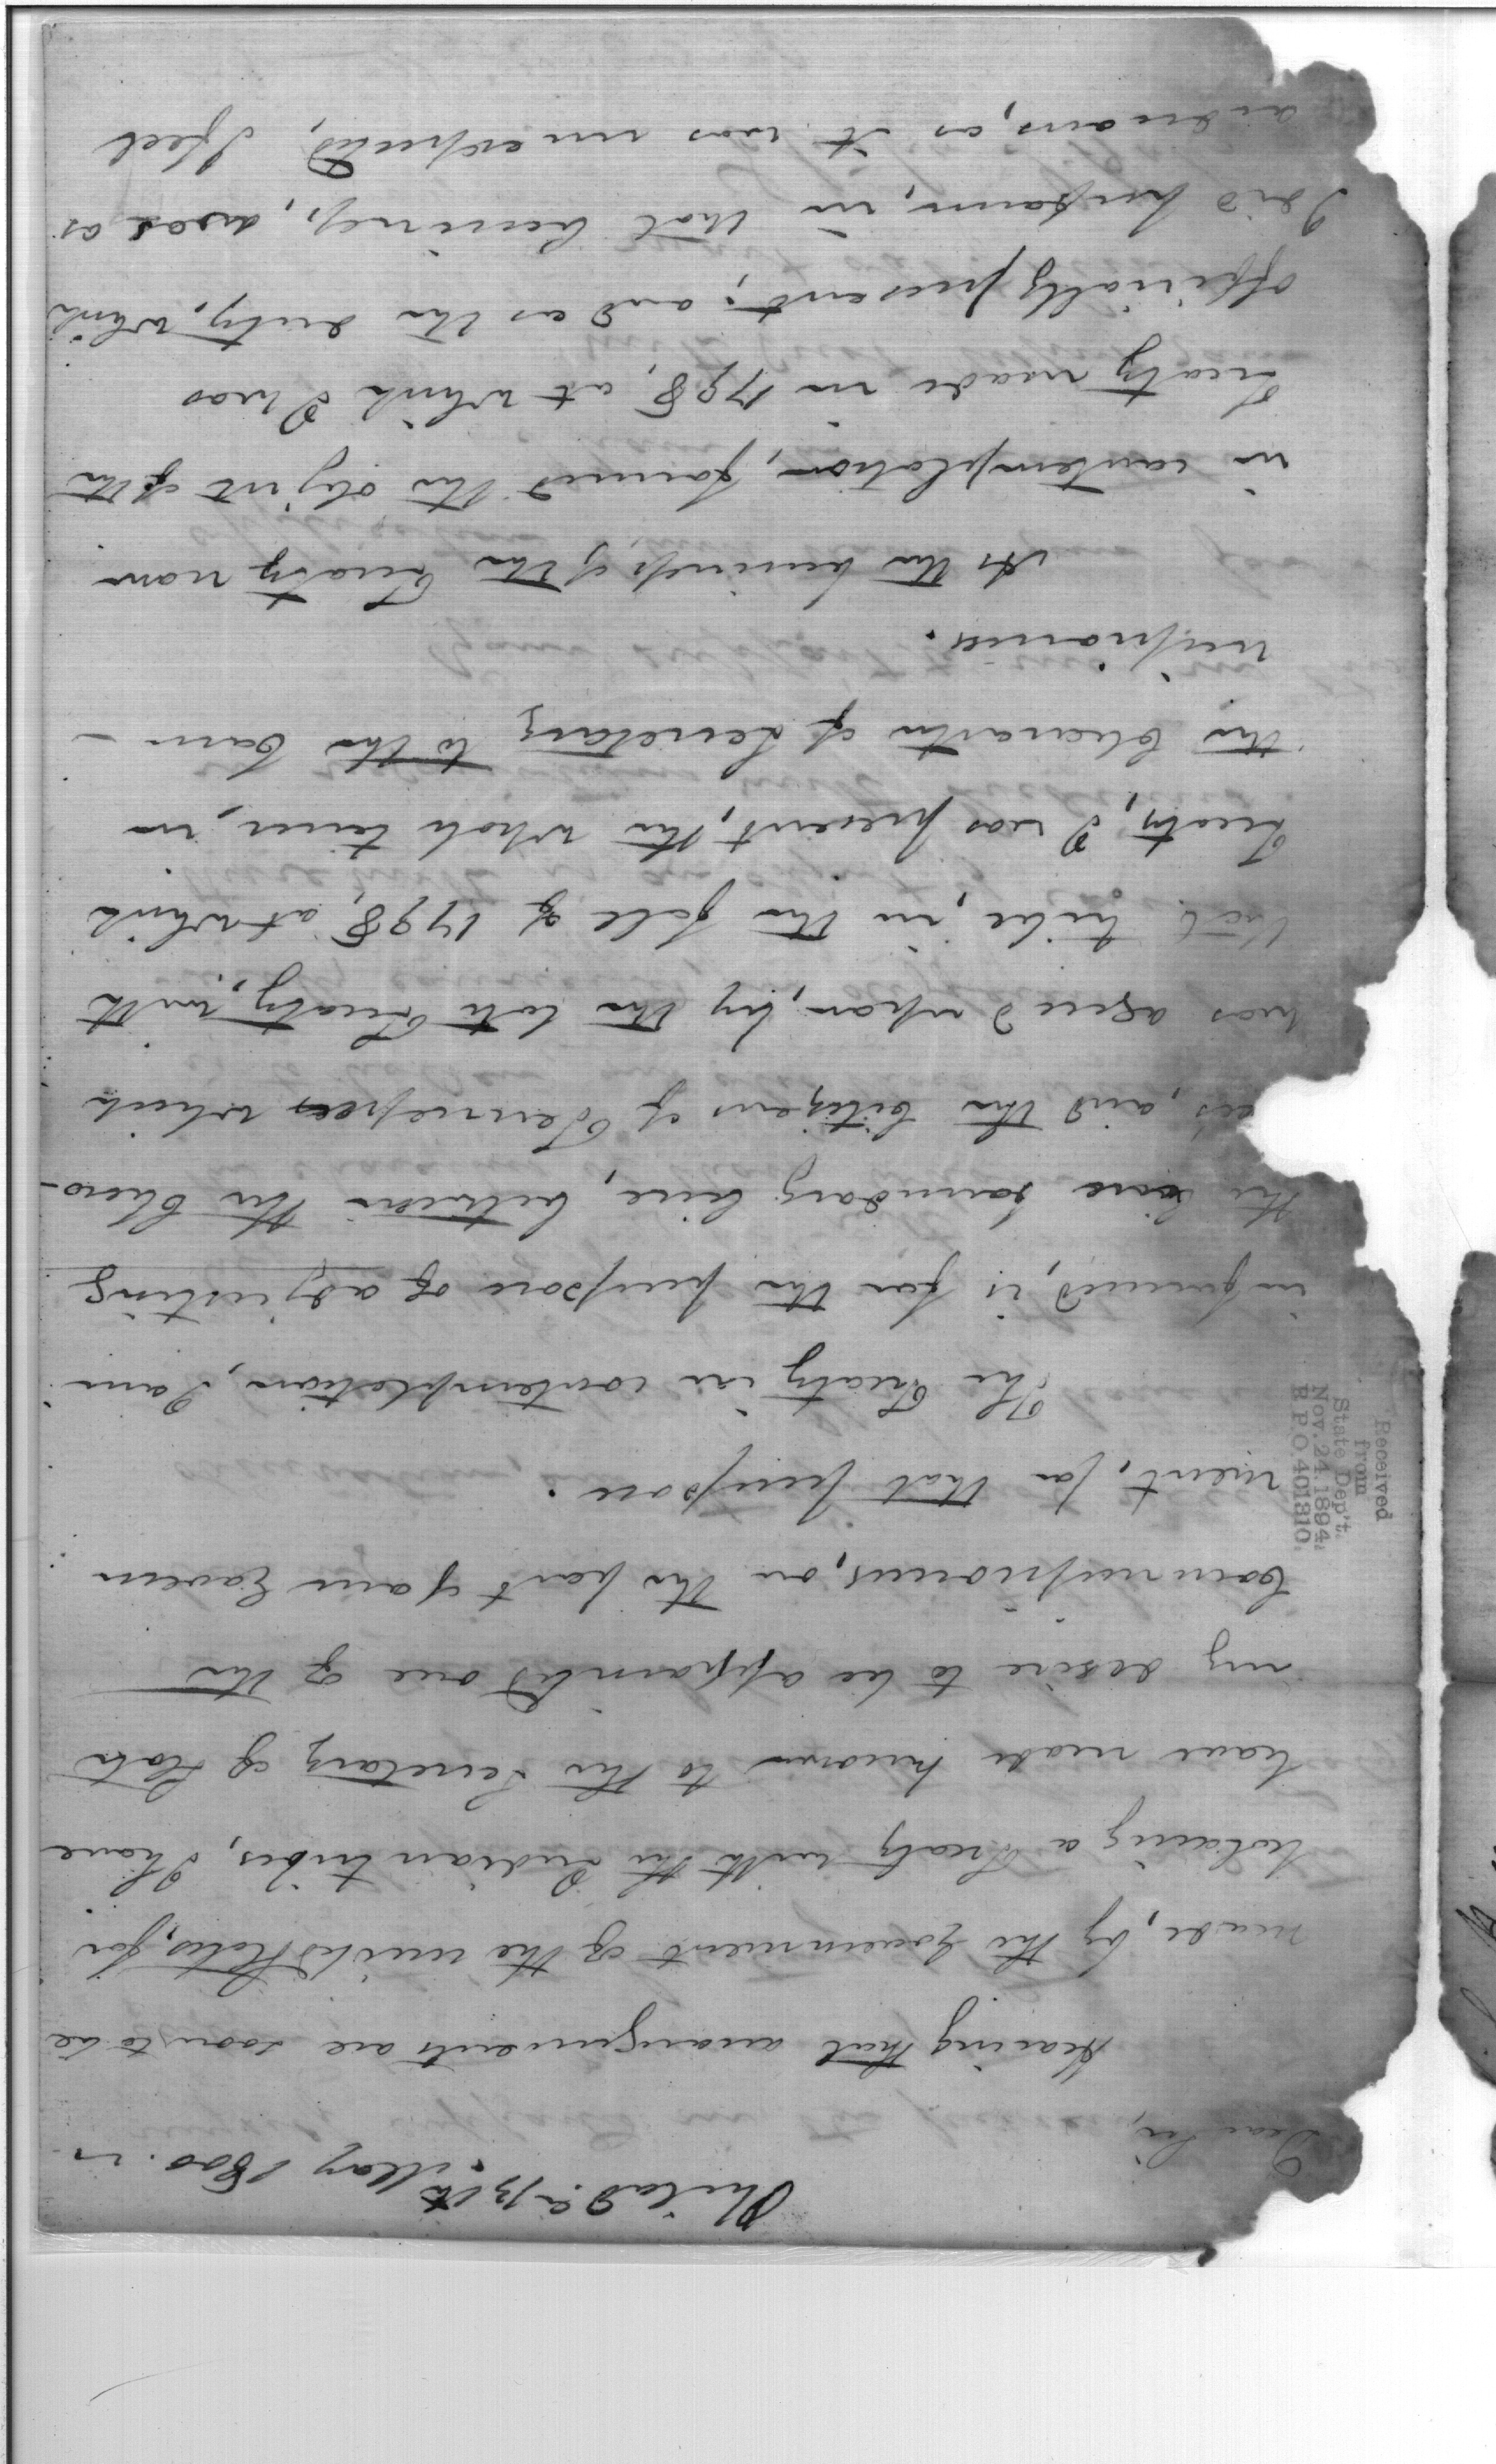 Philad.a 13th May 1800.
Dear Sir,
Hearing that arrangements are soon to be
made, by the Government of the united States, for
holding a Treaty with the Indian tribes, I have
have made known to the Secretary of State
my desire to be appointed one of the
Commissioners, on the part of our Govern
ment, for that purpose.
The Treaty in contemplation, I am
informed, is for the purpose of adjusting
the line boundary line, between the Chero-
kees, and the Citizens of Tennessee which
was agreed upon, by the late Treaty, with
that tribe, in the fall of 1798, at which
Treaty, I was present, the whole time, in
the Character of Secretary to the Com-
missioners.
As the business of the Treaty now
in contemplation, formed the object of the
Treaty made in 1798, at which I was
officially present; and as the duty, which
I did perform, in that business, was as
arduous, as it was unexpected, I feel
Received
from
State Dep't.
Nov. 24. 1894,
R P O. 401310.